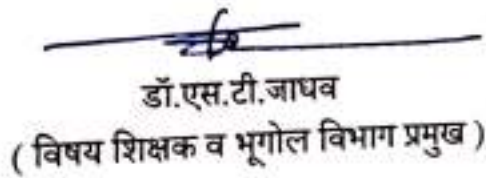 डॉ.एस.टी.जाधव
( विषय शिक्षक व भूगोल विभाग प्रमुख )